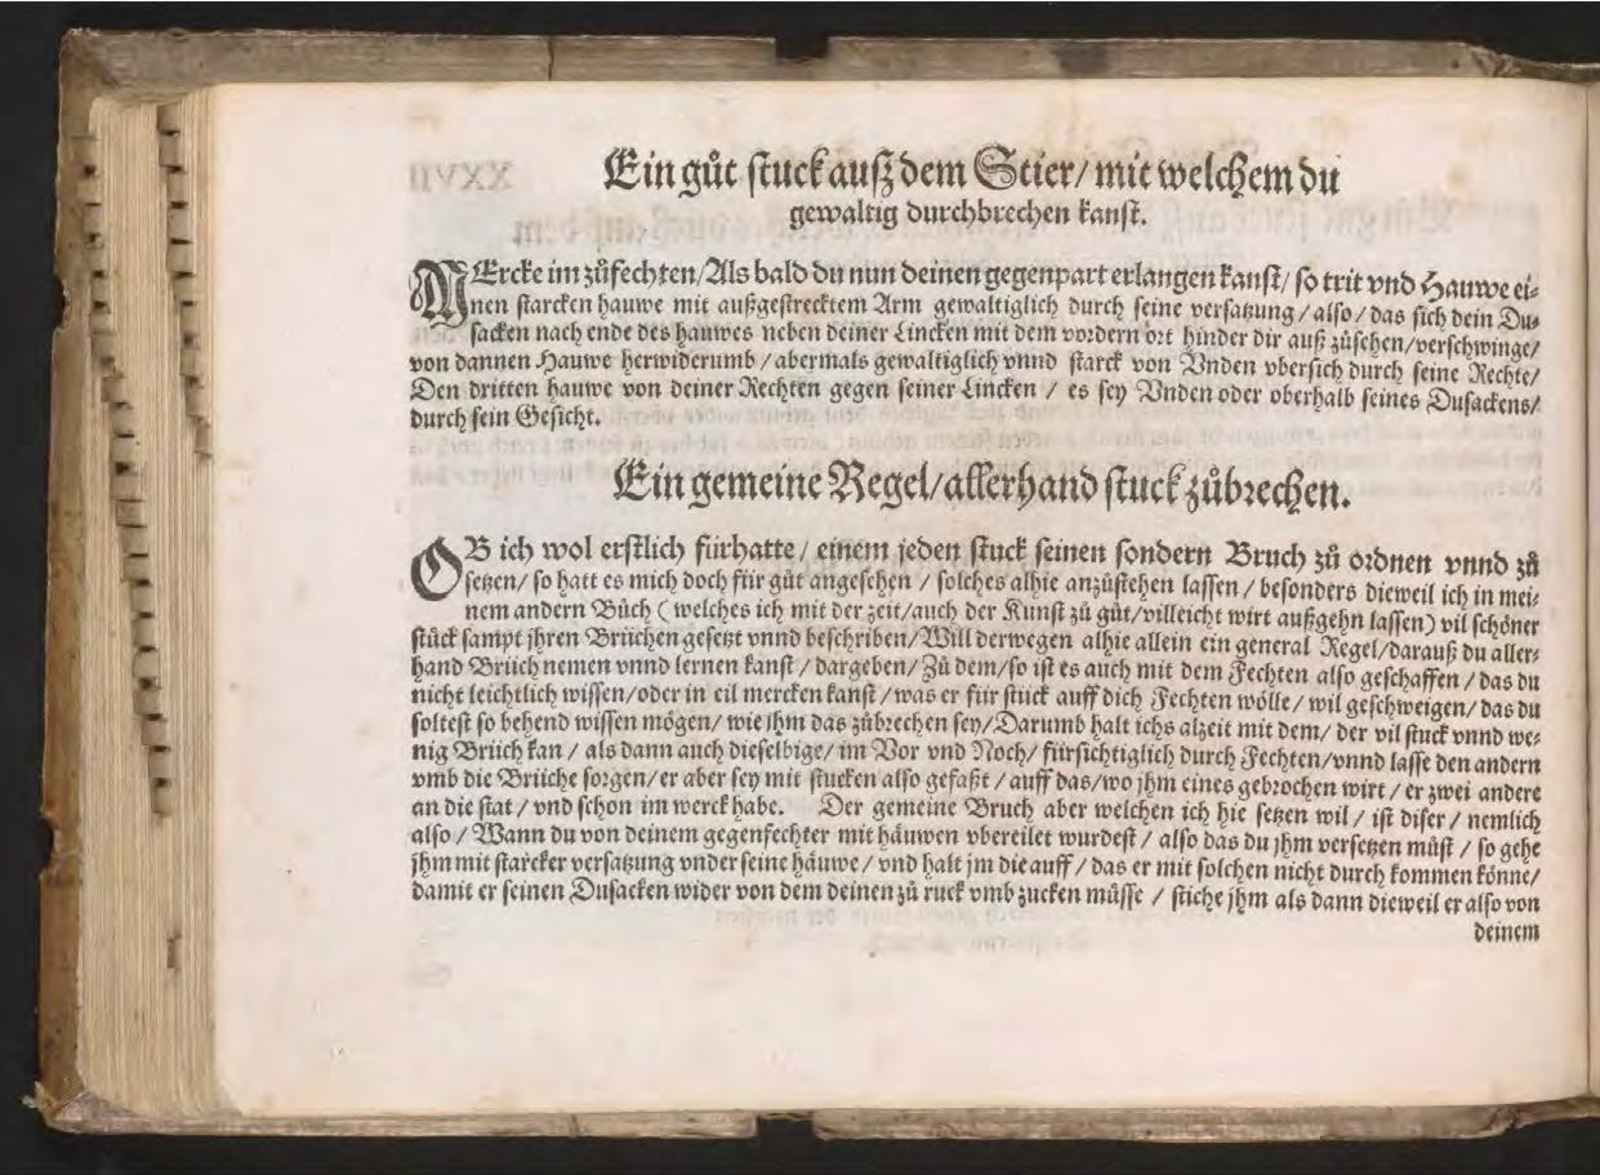 Ein gůt stuck außdem Stier/ mit welchem du
gewaltig durchbrechen kanst.
MErcke im zůfechten/Als bald du nun deinen gegenpart erlangen kanst/ so trit vnd Hauwe ei⸗
nen starcken hauwe mit außgestrecktem Arm gewaltiglich durch seine versatzung/ also/ das sich dein Du⸗
sacken nach ende des hauwes neben deiner Lincken mit dem vordern ort hinder dir auß zůsehen/verschwinge/
von dannen Hauwe herwiderumb / abermals gewaltiglich vnnd starck von Vnden vbersich durch seine Rechte/
Den dritten hauwe von deiner Rechten gegen seiner Lincken / es sey Vnden oder oberhalb seines Dusackens/
durch sein Gesicht.
Ein gemeine Regel/allerhand stuck zůbrechen.
OB ich wol erstlich fürhatte/ einem jeden stuck seinen sondern Bruch zů ordnen vnnd zů
setzen/ so hatt es mich doch für gůt angesehen / solches alhie anzůstehen lassen/ besonders dieweil ich in mei⸗
nem andern Bůch (welches ich mit der zeit/auch der Kunst zů gůt/villeicht wirt außgehn lassen) vil schöner
stůck sampt jhren Brüchen gesetzt vnnd beschriben/Will derwegen alhie allein ein general Regel/darauß du aller⸗
hand Brüch nemen vnnd lernen kanst / dargeben/ Zů dem/so ist es auch mit dem Fechten also geschaffen / das du
nicht leichtlich wissen/oder in eil mercken kanst/was er für stück auff dich Fechten wölle / wil geschweigen/ das du
soltest so behend wissen mögen/ wie jhm das zůbrechen sey/Darumb halt ichs alzeit mit dem/ der vil stuck vnnd we⸗
nig Brüch kan / als dann auch dieselbige/ im Vor vnd Noch/ fürsichtiglich durch Fechten/vnnd lasse den andern
vmb die Brüche sorgen/er aber sey mit stucken also gefaßt / auff das/wo jhm eines gebrochen wirt/ er zwei andere
an die stat/ vnd schon im werck habe. Der gemeine Bruch aber welchen ich hie setzen wil/ ist diser/ nemlich
also / Wann du von deinem gegenfechter mit häuwen vbereilet wurdest/ also das du jhm versetzen můst / so gehe
jhm mit starcker versatzung vnder seine häuwe/ vnd halt jm die auff/ das er mit solchen nicht durch kommen könne/
damit er seinen Dusacken wider von dem deinen zů ruck vmb zucken můsse / stiche jhm als dann dieweil er also von
deinem